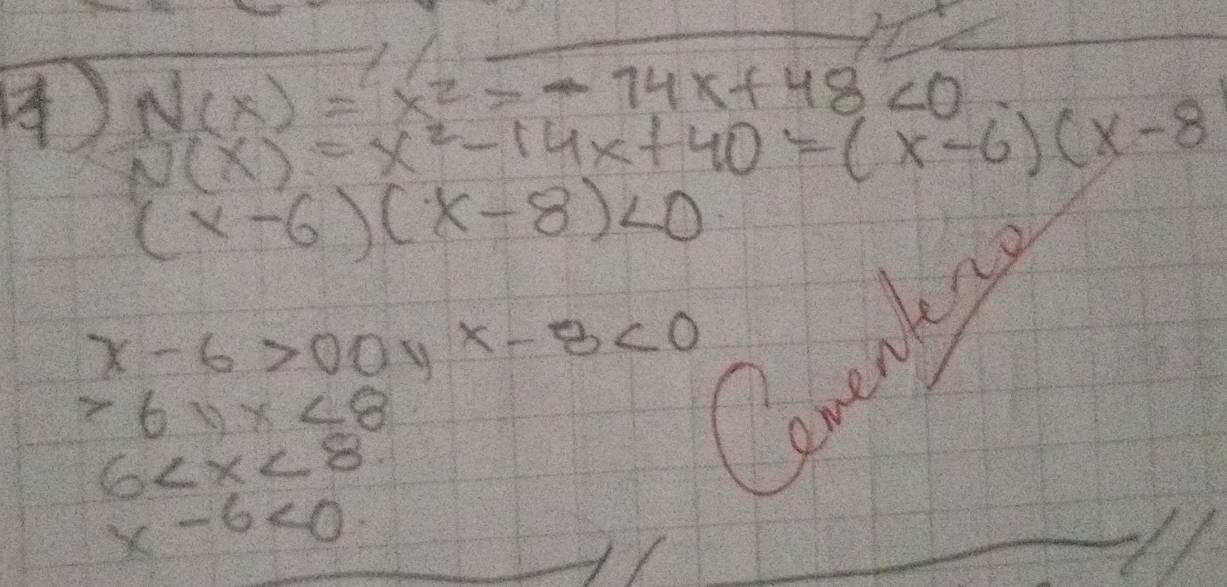 N(x) = x² = - 14x + 48 < 0
N(x) = x² - 14x + 40 = (x - 6)(x - 8
(x - 6)(x - 8) < 0
x - 6 > 00 y x - 8 < 0
> 6 y x < 8
6 < x < 8.
x - 6 < 0.